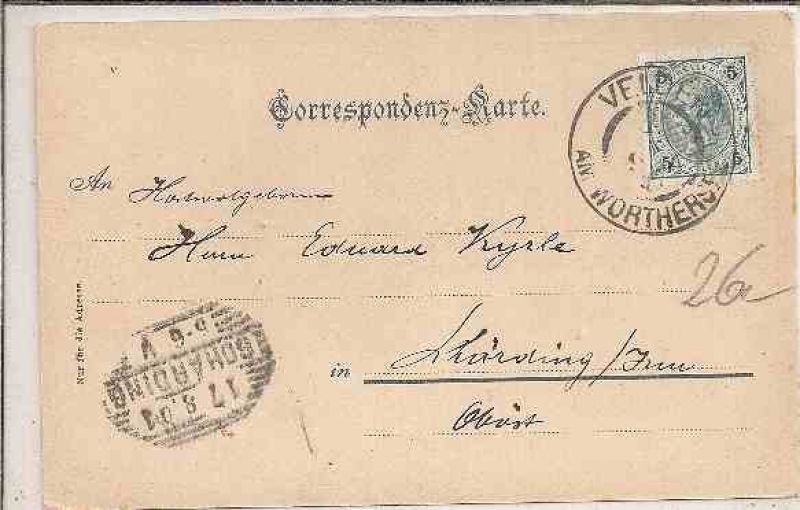 Correspondenz-Karte.
VELDEN
AM WÖRTHERSEE
5 5
5 5
An Hochwolgeboren
Herrn Eduard Kyrle
26
Nur für die Adresse.
in Schärding/Inn
Oböst
SCHÄRDING
17.8.01
5-6 V